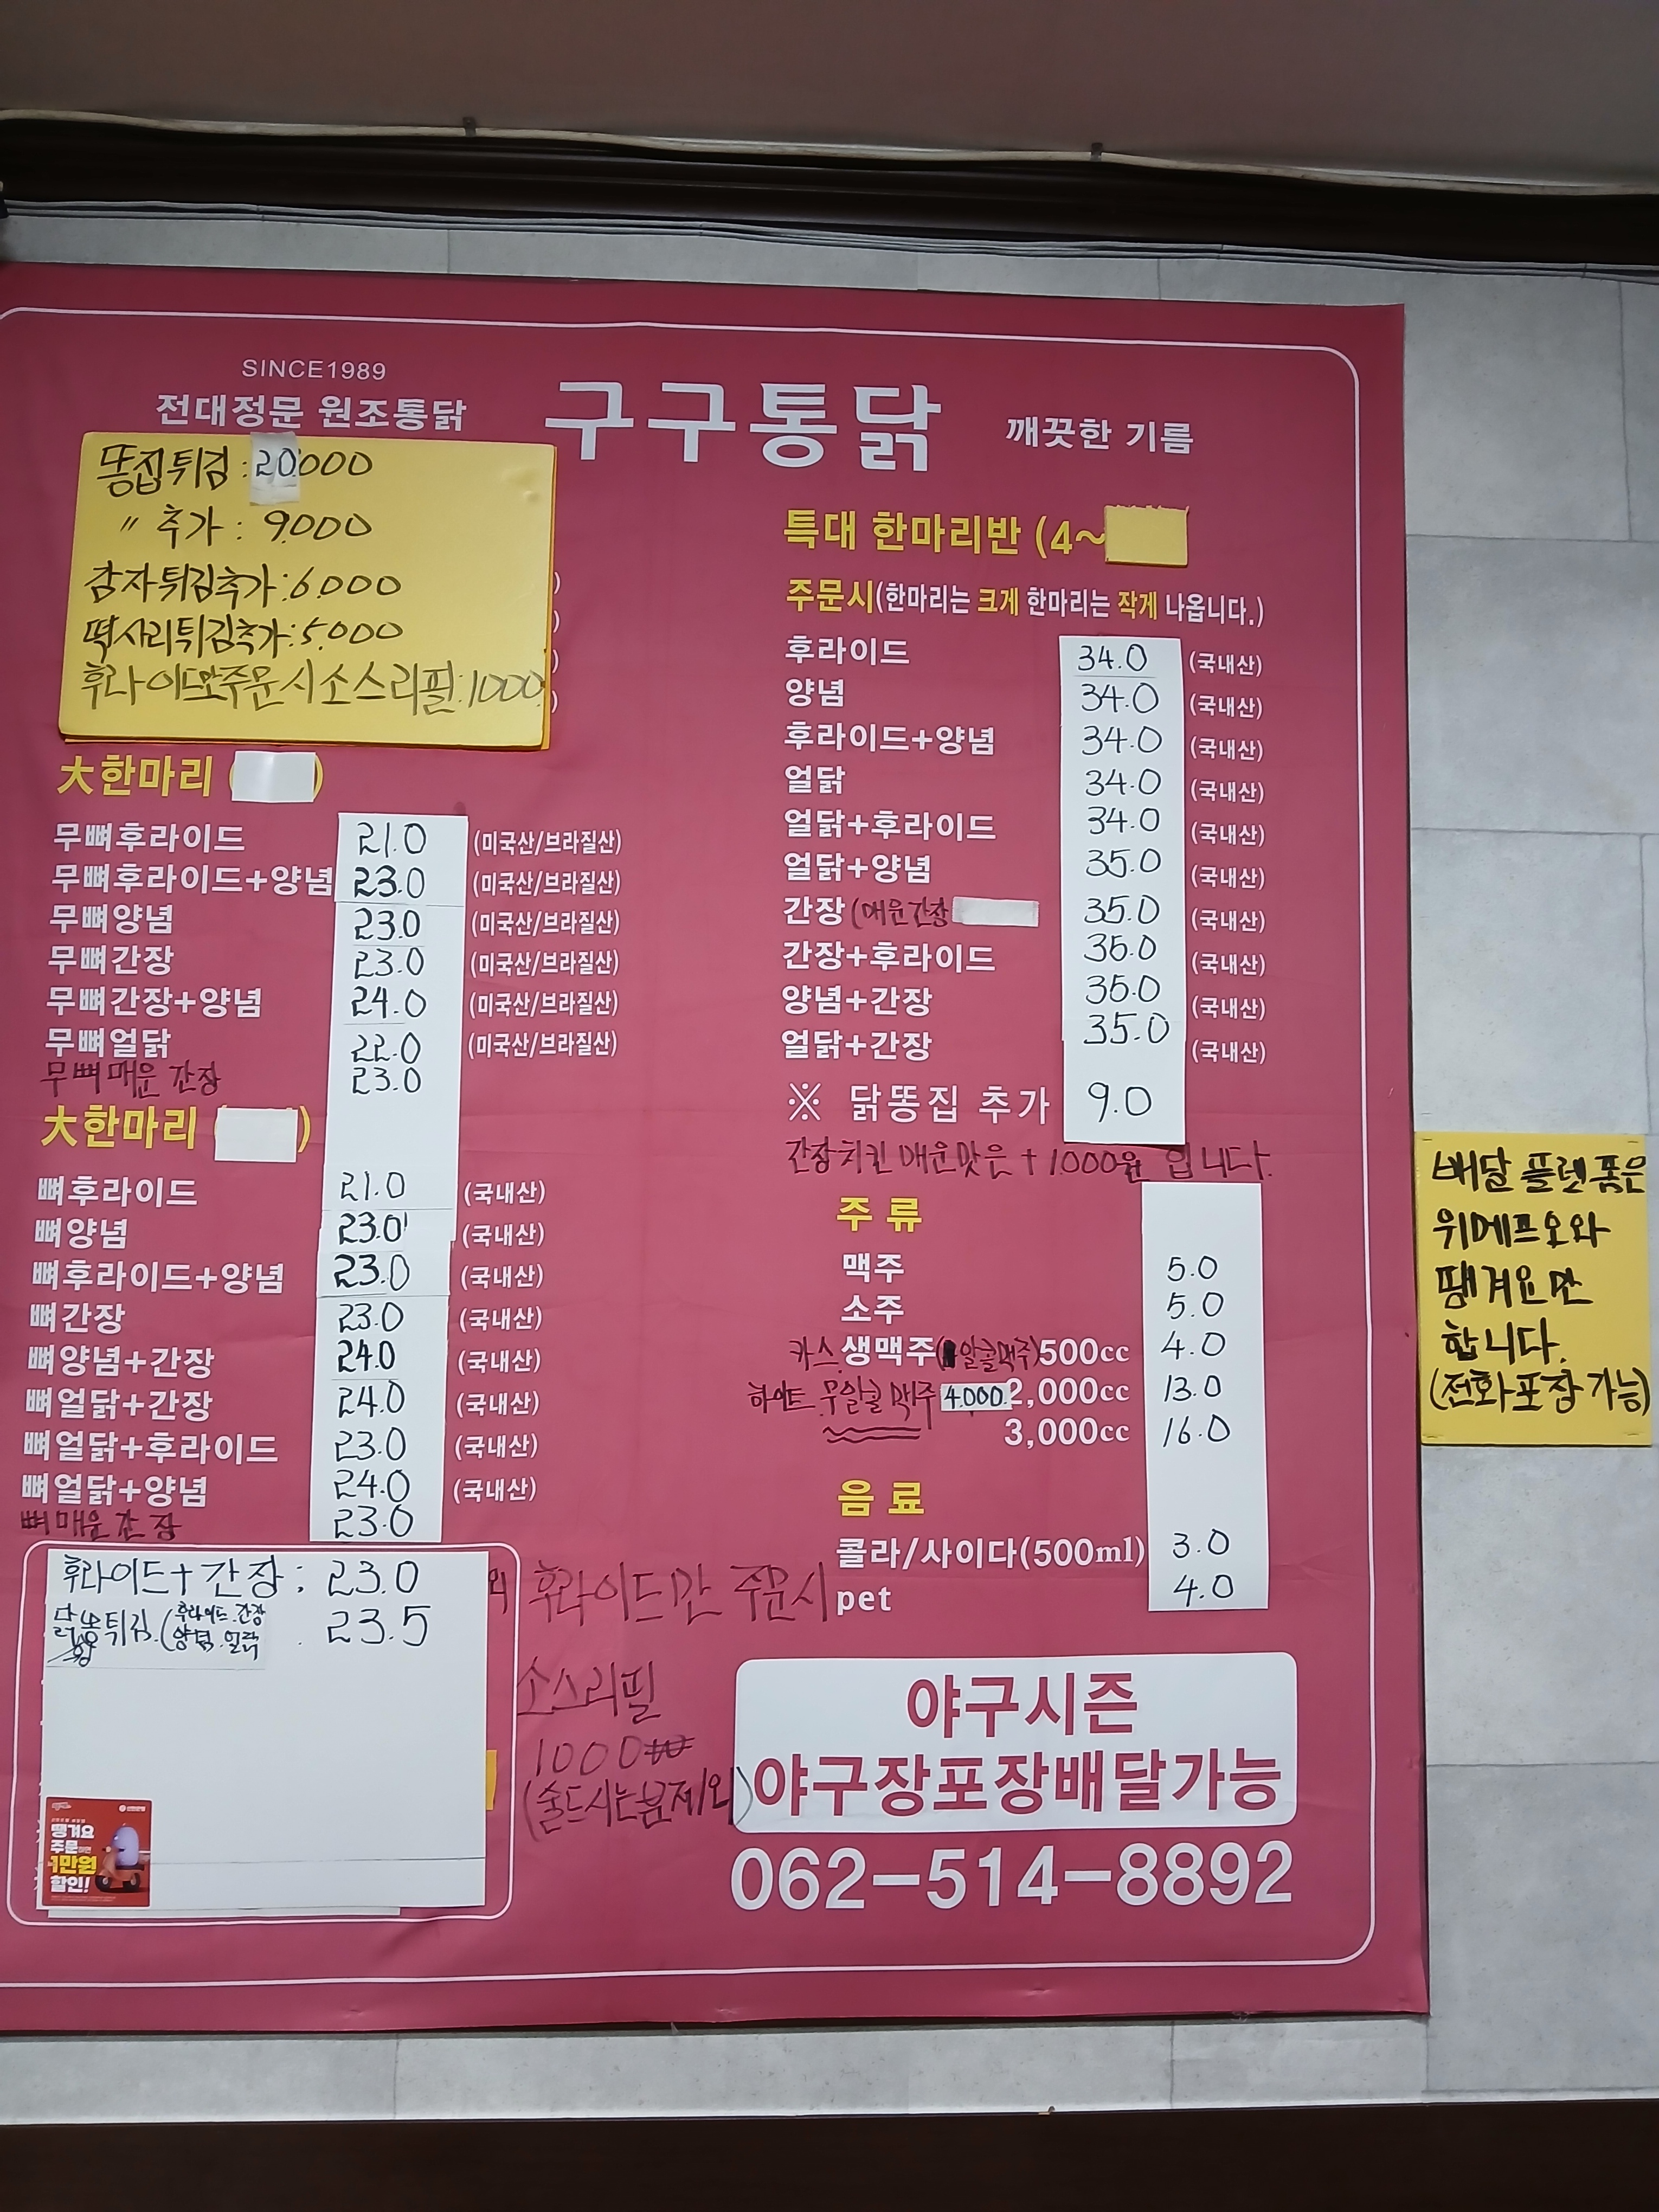 SINCE1989
전대정문 원조통닭
구구통닭
깨끗한 기름
똥집튀김:20.000
〃 추가: 9.000
감자튀김추가:6.000
떡사리튀김추가:5.000
후라이드만주문시소스리필:1000
大한마리 ( )
무뼈후라이드 21.0 (미국산/브라질산)
무뼈후라이드+양념 23.0 (미국산/브라질산)
무뼈양념 23.0 (미국산/브라질산)
무뼈간장 23.0 (미국산/브라질산)
무뼈간장+양념 24.0 (미국산/브라질산)
무뼈얼닭 22.0 (미국산/브라질산)
무뼈 매운 간장 23.0
大한마리 ( )
뼈후라이드 21.0 (국내산)
뼈양념 23.0 (국내산)
뼈후라이드+양념 23.0 (국내산)
뼈간장 23.0 (국내산)
뼈양념+간장 24.0 (국내산)
뼈얼닭+간장 24.0 (국내산)
뼈얼닭+후라이드 23.0 (국내산)
뼈얼닭+양념 24.0 (국내산)
뼈매운간장 23.0
후라이드+간장: 23.0
튀김.(후라이드.간장
양념.얼닭 23.5
땡겨요
주문하면
1만원
할인!
특대 한마리반 (4~
주문시(한마리는 크게 한마리는 작게 나옵니다.)
후라이드 34.0 (국내산)
양념 34.0 (국내산)
후라이드+양념 34.0 (국내산)
얼닭 34.0 (국내산)
얼닭+후라이드 34.0 (국내산)
얼닭+양념 35.0 (국내산)
간장 (매운간장 35.0 (국내산)
간장+후라이드 35.0 (국내산)
양념+간장 35.0 (국내산)
얼닭+간장 35.0 (국내산)
※ 닭똥집 추가 9.0
간장치킨 매운맛은 +1000원 입니다.
주 류
맥주 5.0
소주 5.0
카스 생맥주( 알콜맥주)500cc 4.0
하이트 무알콜 맥주 4.000 2,000cc 13.0
3,000cc 16.0
음 료
콜라/사이다(500ml) 3.0
pet 4.0
후라이드만 주문시
소스리필
1000₩
(술드시는분제외)
야구시즌
야구장포장배달가능
062-514-8892
배달 플렛폼은
위메프오와
땡겨요만
합니다.
(전화포장가능)